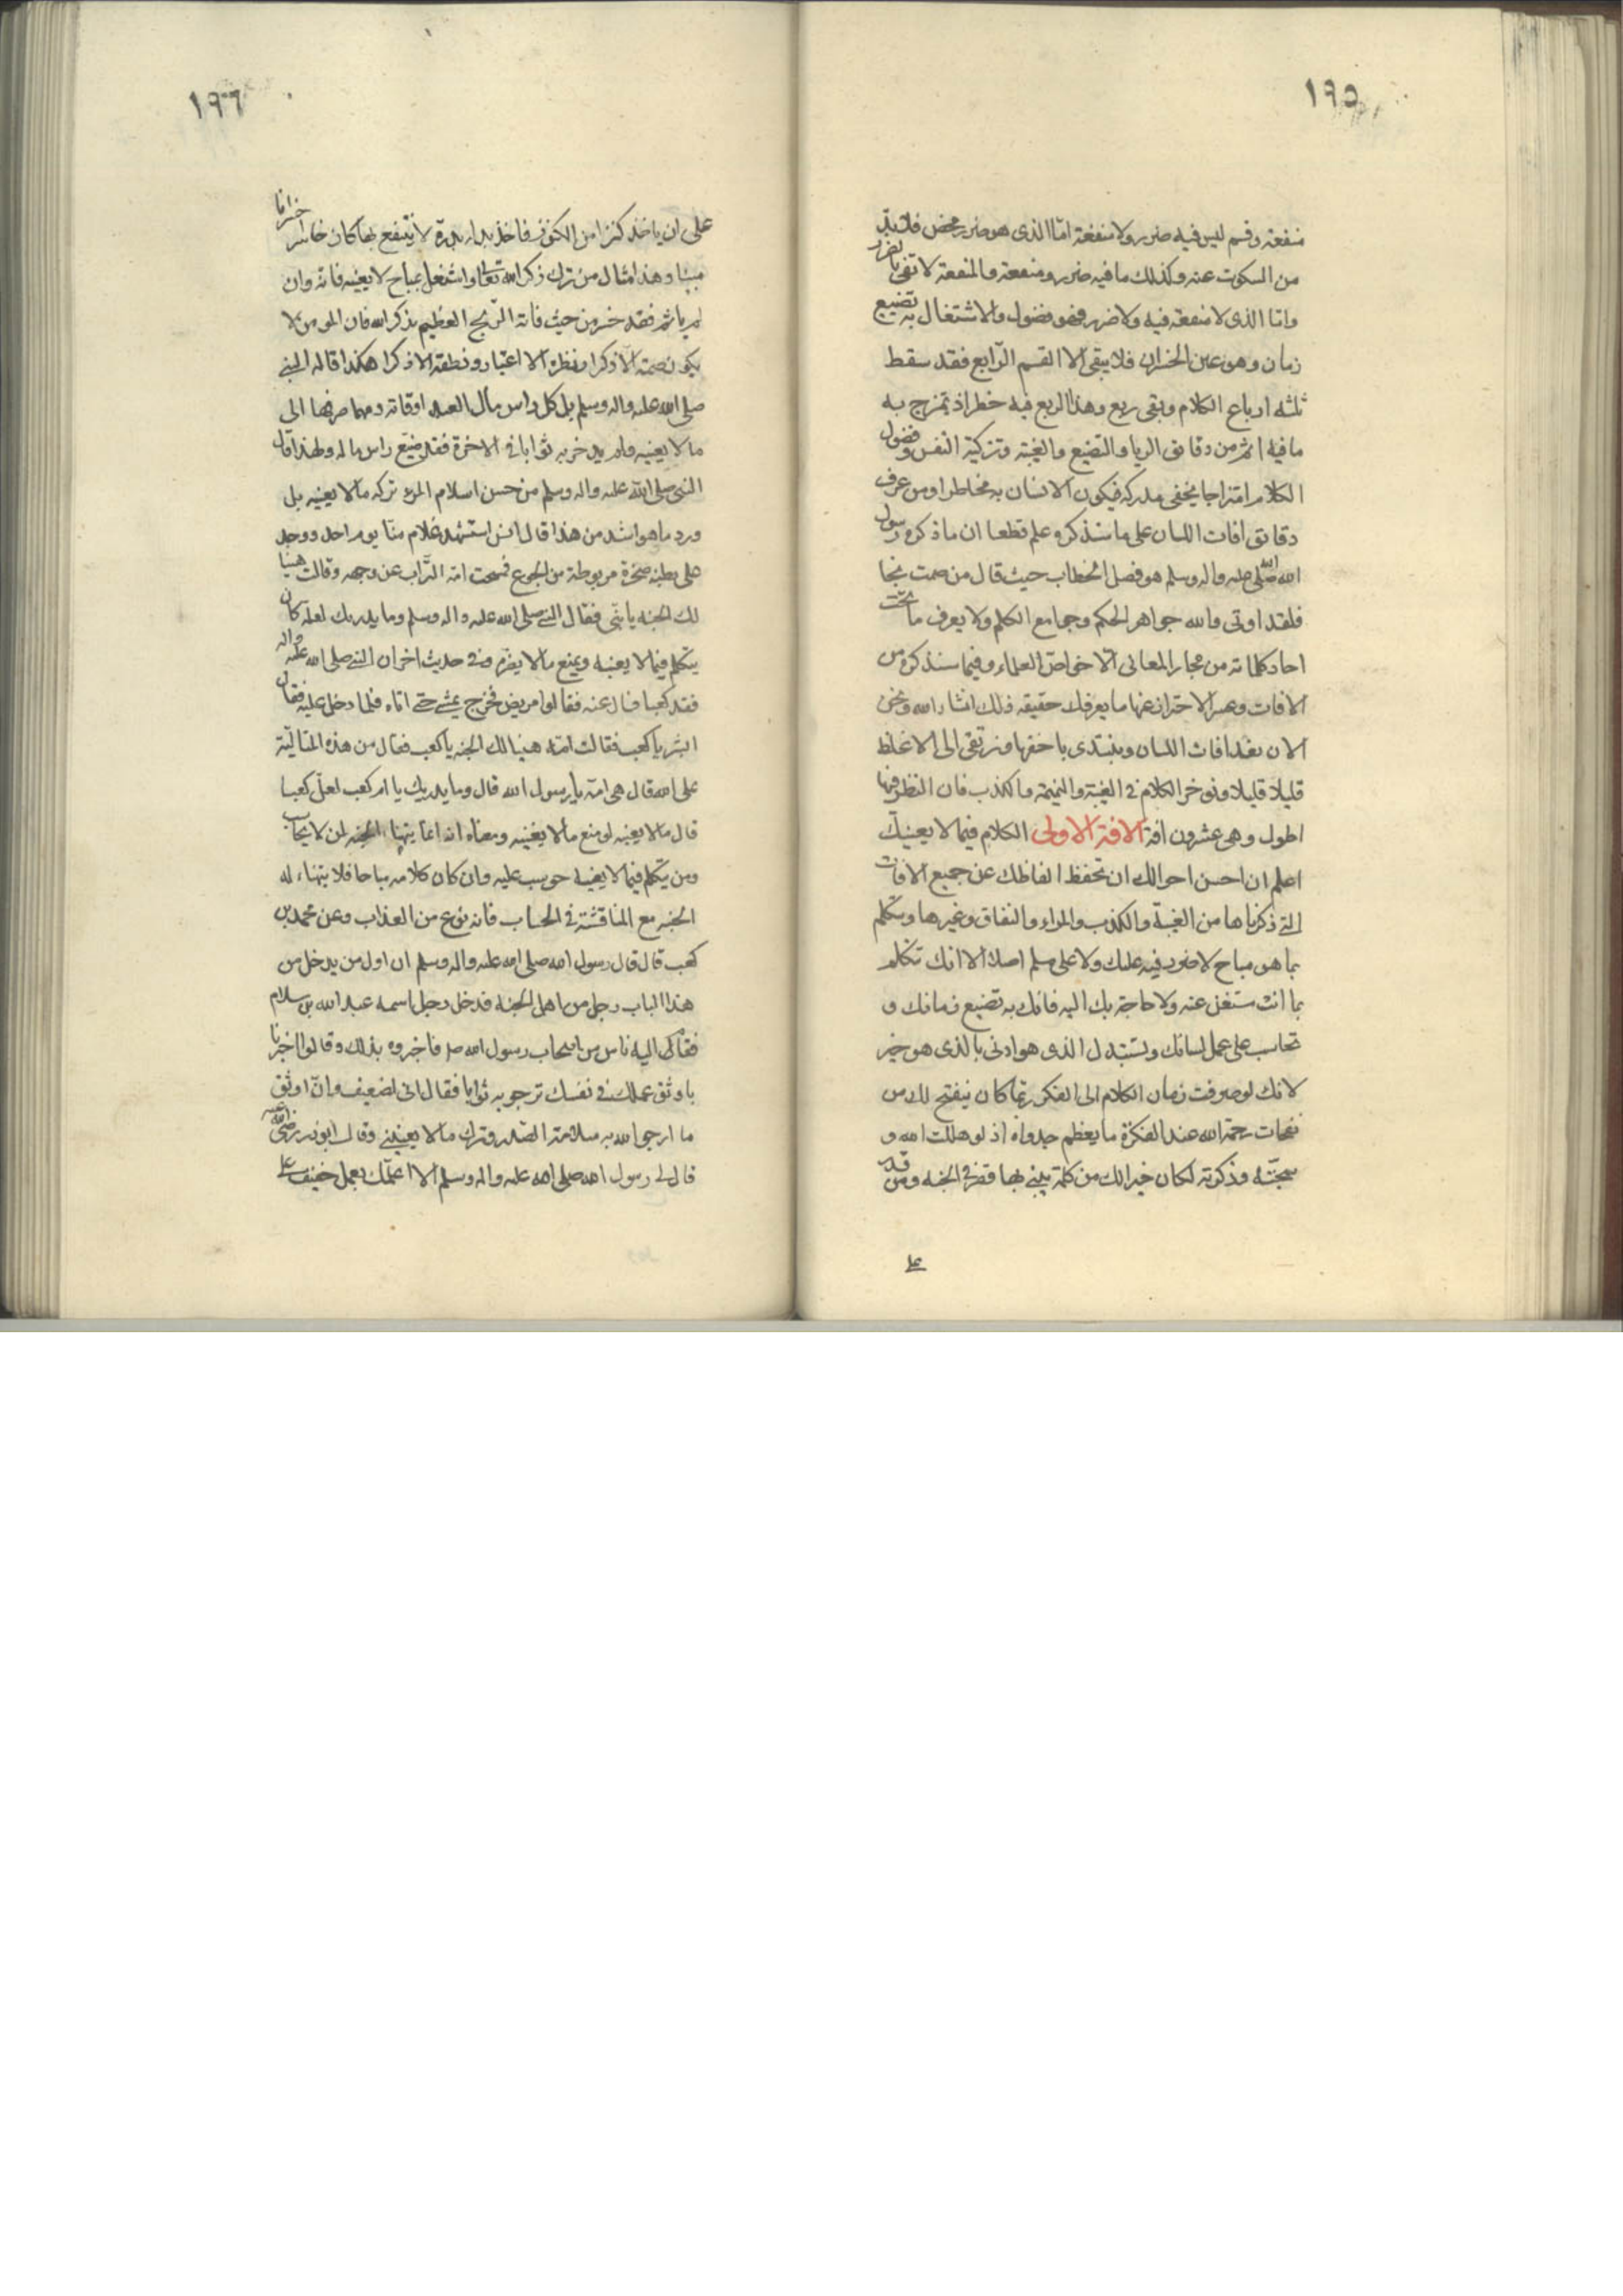 ١٩٥
منفعة وقسم ليس فيه ضرر ولا منفعة اما الذى هو ضرر محض فلا بد
من السكوت عنه وكذلك ما فيه ضرر ومنفعة والمنفعة لا تفى بالضرر
واما الذى لا منفعة فيه ولا ضرر فهو فضول والاشتغال به تضييع
زمان وهو عين الخسران فلا يبقى الا القسم الرّابع فقد سقط
ثلثه ارباع الكلام وبقى ربع وهذا الربع فيه خطر اذ يمتزج به
ما فيه اثم من دقايق الريا والتضيع والغيبة وتزكية النفس وفضول
الكلام امتزاجا يخفى مدركه فيكون الانسان به مخاطرا ومن عرف
دقايق افات اللسان على ما سنذكره علم قطعا ان ما ذكره رسول
الله صلى الله عليه واله وسلم هو فصل الخطاب حيث قال من صمت نجا
فلقد اوتى والله جواهر الحكم وجوامع الكلم ولا يعرف ما تحت
احاد كلماته من بحار المعانى الا خواصّ العلماء وفيما سنذكره من
الافات وعسر الاحتراز عنها ما يعرفك حقيقة ذلك انشاء الله ونحن
الان نعد افات اللسان ونبتدى باخفها ونرتقى الى الاغلظ
قليلا قليلا ونوخر الكلام فى الغيبة والنميمة والكذب فان النظر فيها
اطول وهى عشرون افة الافة الاولى الكلام فيما لا يعنيك
اعلم ان احسن احوالك ان تحفظ الفاظك عن جميع الافات
التى ذكرناها من الغيبة والكذب والمراء والنفاق وغيرها وتتكلم
بما هو مباح لا ضرر فيه عليك ولا على مسلم اصلا الا انك تتكلم
بما انت مستغن عنه ولا حاجة بك اليه فانك به تضيع زمانك و
تحاسب على عمل لسانك وتستبدل الذى هو ادنى بالذى هو خير
لانك لو صرفت زمان الكلام الى الفكر ربما كان ينفتح لك من
نفحات رحمة الله عند الفكرة ما يعظم جدواه اذ لو هللت الله و
سبحته وذكرته لكان خيرا لك من كلمة يبنى بها قصر فى الجنة ومن قدر
على
١٩٦
على ان ياخذ كنزا من الكنوز فاخذ بدله مدرة لا ينتفع بها كان خاسرا خسرانا
مبينا وهذا مثال من ترك ذكر الله تعالى واشتغل بمباح لا يعنيه فانه وان
لم ياثم فقد خسر من حيث فاته الرّبح العظيم بذكر الله فان المومن لا
يكون صمته الا فكرا ونظره الا اعتبارا ونطقه الا ذكرا هكذا قاله النبى
صلى الله عليه واله وسلم بل كل راس مال العبد اوقاته ومهما صرفها الى
ما لا يعنيه ولم يدخر به ثوابا فى الاخرة فقد ضيّع راس ماله ولهذا قال
النبى صلى الله عليه واله وسلم من حسن اسلام المرء تركه ما لا يعنيه بل
ورد ما هو اشد من هذا قال انس استشهد غلام منّا يوم احد ووجد
على بطنه صخرة مربوطة من الجوع فمسحت امّه التّراب عن وجهه وقالت هنيا
لك الجنة يا بنى فقال النبى صلى الله عليه واله وسلم وما يدريك لعله كان
يتكلم فيما لا يعنيه ويمنع ما لا يضرّه وفى حديث اخر ان النبى صلى الله عليه واله
فقد كعبا فسال عنه فقالوا مريض فخرج يمشى حتى اتاه فلما دخل عليه فقال
ابشر يا كعب فقالت امّه هنيا لك الجنة يا كعب فقال من هذه المتاليّة
على الله قال هى امّه يا رسول الله قال وما يدريك يا ام كعب لعلّ كعبا
قال ما لا يعنيه او منع ما لا يغنيه ومعناه انه انما يتهنا الجنة لمن لا يحاسب
ومن يتكلم فيما لا يعنيه حوسب عليه وان كان كلامه مباحا فلا يتهناء له
الجنة مع المناقشة فى الحساب فانه نوع من العذاب وعن محمد بن
كعب قال قال رسول الله صلى الله عليه واله وسلم ان اول من يدخل من
هذا الباب رجل من اهل الجنة فدخل رجل اسمه عبد الله بن سلام
فقام اليه ناس من اصحاب رسول الله صلم فاخبروه بذلك وقالوا اخبرنا
باوثق عملك فى نفسك ترجو به ثوابا فقال انى لضعيف وانّ اوثق
ما ارجو الله به سلامة الصّدر وترك ما لا يعنينى وقال ابوذر رضى الله عنه
قال لى رسول الله صلى الله عليه واله وسلم الا اعلّمك بعمل خفيف على